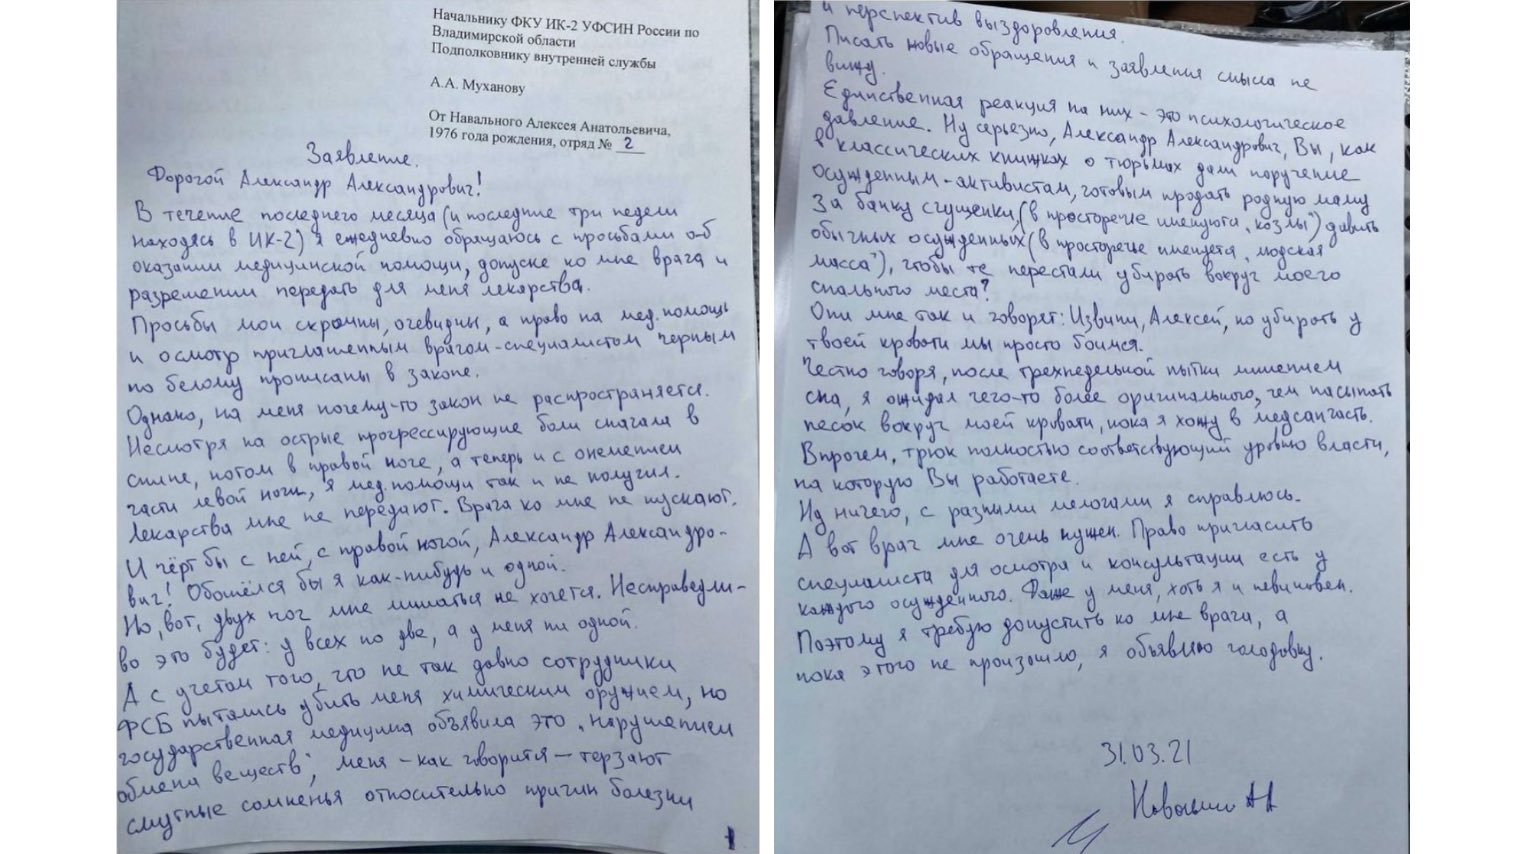 Начальнику ФКУ ИК-2 УФСИН России по
Владимирской области
Подполковнику внутренней службы
А.А. Муханову
От Навального Алексея Анатольевича,
1976 года рождения, отряд № 2
Заявление.
Дорогой Александр Александрович!
В течение последнего месяца (и последние три недели
находясь в ИК-2) я ежедневно обращаюсь с просьбами о-б
оказании медицинской помощи, допуске ко мне врача и
разрешении передать для меня лекарства.
Просьбы мои скромны, очевидны, а право на мед.помощь
и осмотр приглашенным врачом-специалистом черным
по белому прописаны в законе.
Однако, на меня почему-то закон не распространяется.
Несмотря на острые прогрессирующие боли сначала в
спине, потом в правой ноге, а теперь и с онемением
части левой ноги, я мед.помощи так и не получил.
Лекарства мне не передают. Врача ко мне не пускают.
И чёрт бы с ней, с правой ногой, Александр Александро-
вич! Обошёлся бы я как-нибудь и одной.
Но, вот, двух ног мне лишаться не хочется. Несправедли-
во это будет: у всех по две, а у меня ни одной.
А с учетом того, что не так давно сотрудники
ФСБ пытались убить меня химическим оружием, но
государственная медицина объявила это „нарушением
обмена веществ", меня – как говорится – терзают
смутные сомненья относительно причин болезни
1
и перспектив выздоровления.
Писать новые обращения и заявления смысла не
вижу.
Единственная реакция на них - это психологическое
давление. Ну серьезно, Александр Александрович, Вы, как
в классических книжках о тюрьмах дали поручение
осужденным-активистам, готовым продать родную маму
за банку сгущенки, (в просторечие именуются „козлы") давить
обычных осужденных (в просторечье именуется „людская
масса"), чтобы те перестали убирать вокруг моего
спального места?
Они мне так и говорят: Извини, Алексей, но убирать у
твоей кровати мы просто боимся.
Честно говоря, после трехнедельной пытки лишением
сна, я ожидал чего-то более оригинального, чем насыпать
песок вокруг моей кровати, пока я хожу в медсанчасть.
Впрочем, трюк полностью соответствующий уровню власти,
на которую Вы работаете.
Ну ничего, с разными мелочами я справлюсь.
А вот врач мне очень нужен. Право пригласить
специалиста для осмотра и консультации есть у
каждого осужденного. Даже у меня, хоть я и невиновен.
Поэтому я требую допустить ко мне врача, а
пока этого не произошло, я объявляю голодовку.
31.03.21
Навальный АА